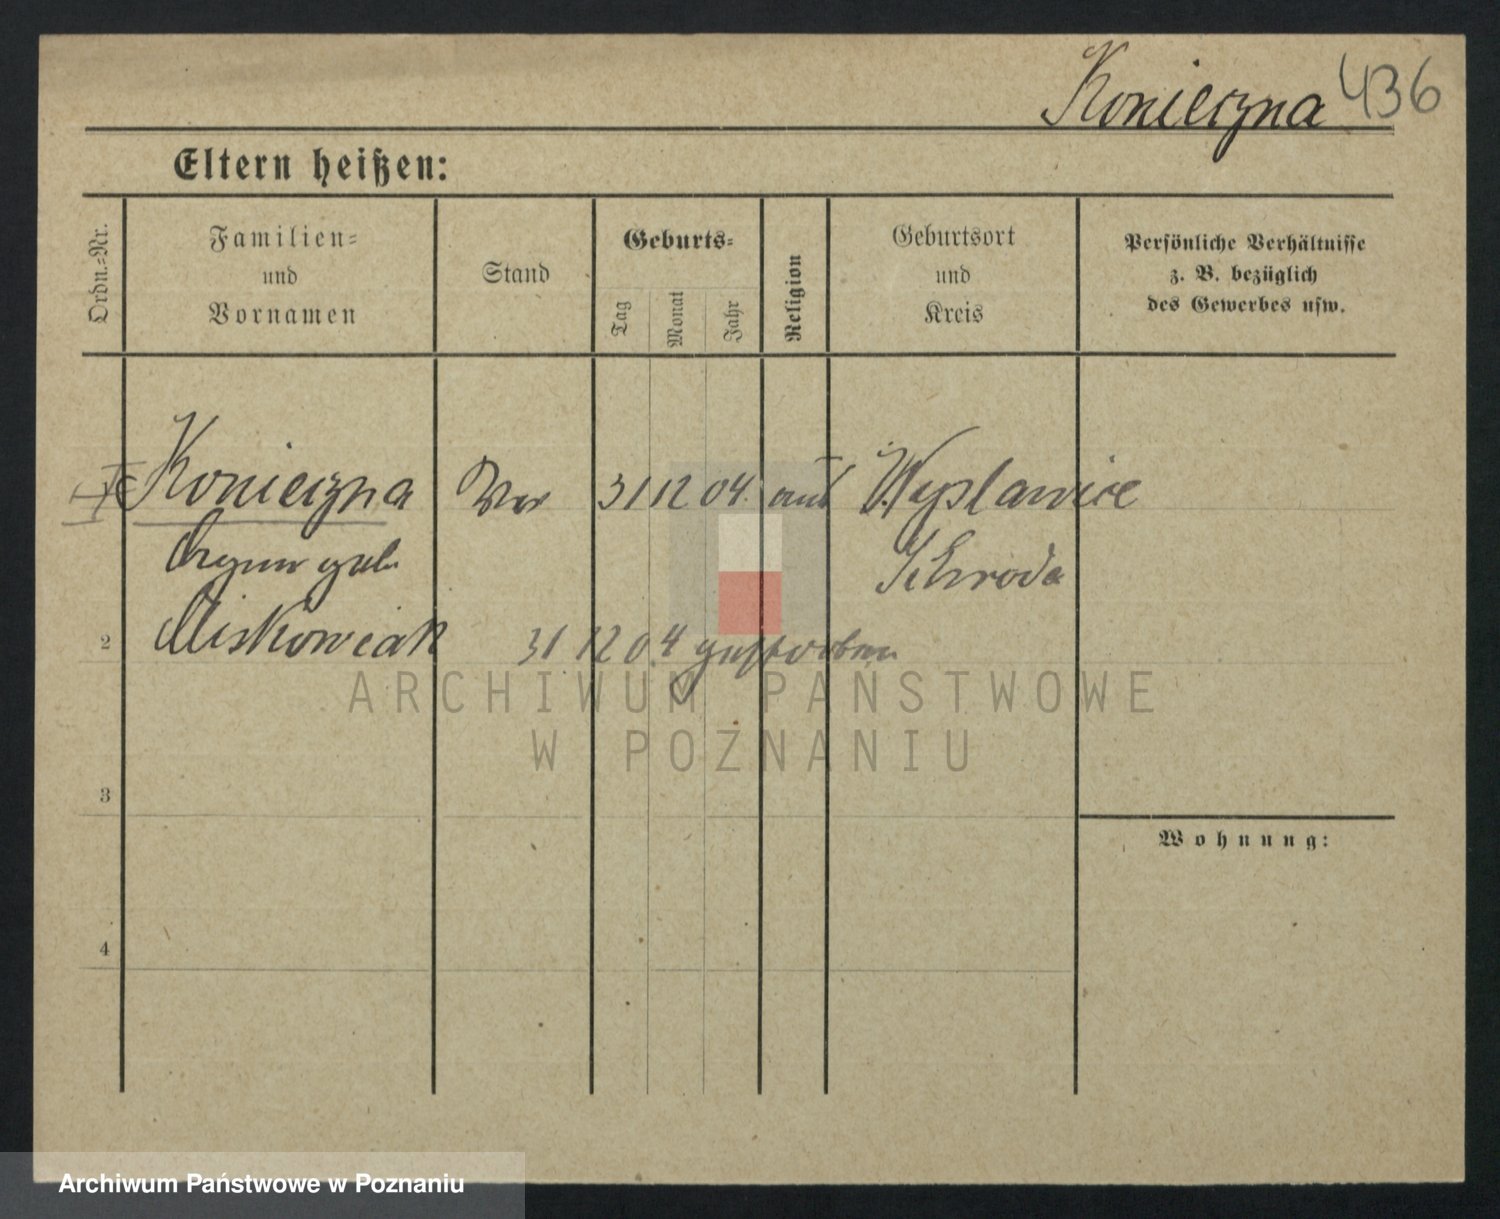 Konieczna 436
Eltern heißen:
Ordn.=Nr.
Familien=
und
Vornamen
Stand
Geburts=
Tag
Monat
Jahr
Religion
Geburtsort
und
Kreis
Persönliche Verhältnisse
z. B. bezüglich
des Gewerbes usw.
Konieczna 31 12 04
geb.
Schroda
2 Miskowiak 31 12 04 gestorben
3
4
Wohnung:
ARCHIWUM PAŃSTWOWE
W POZNANIU
Archiwum Państwowe w Poznaniu